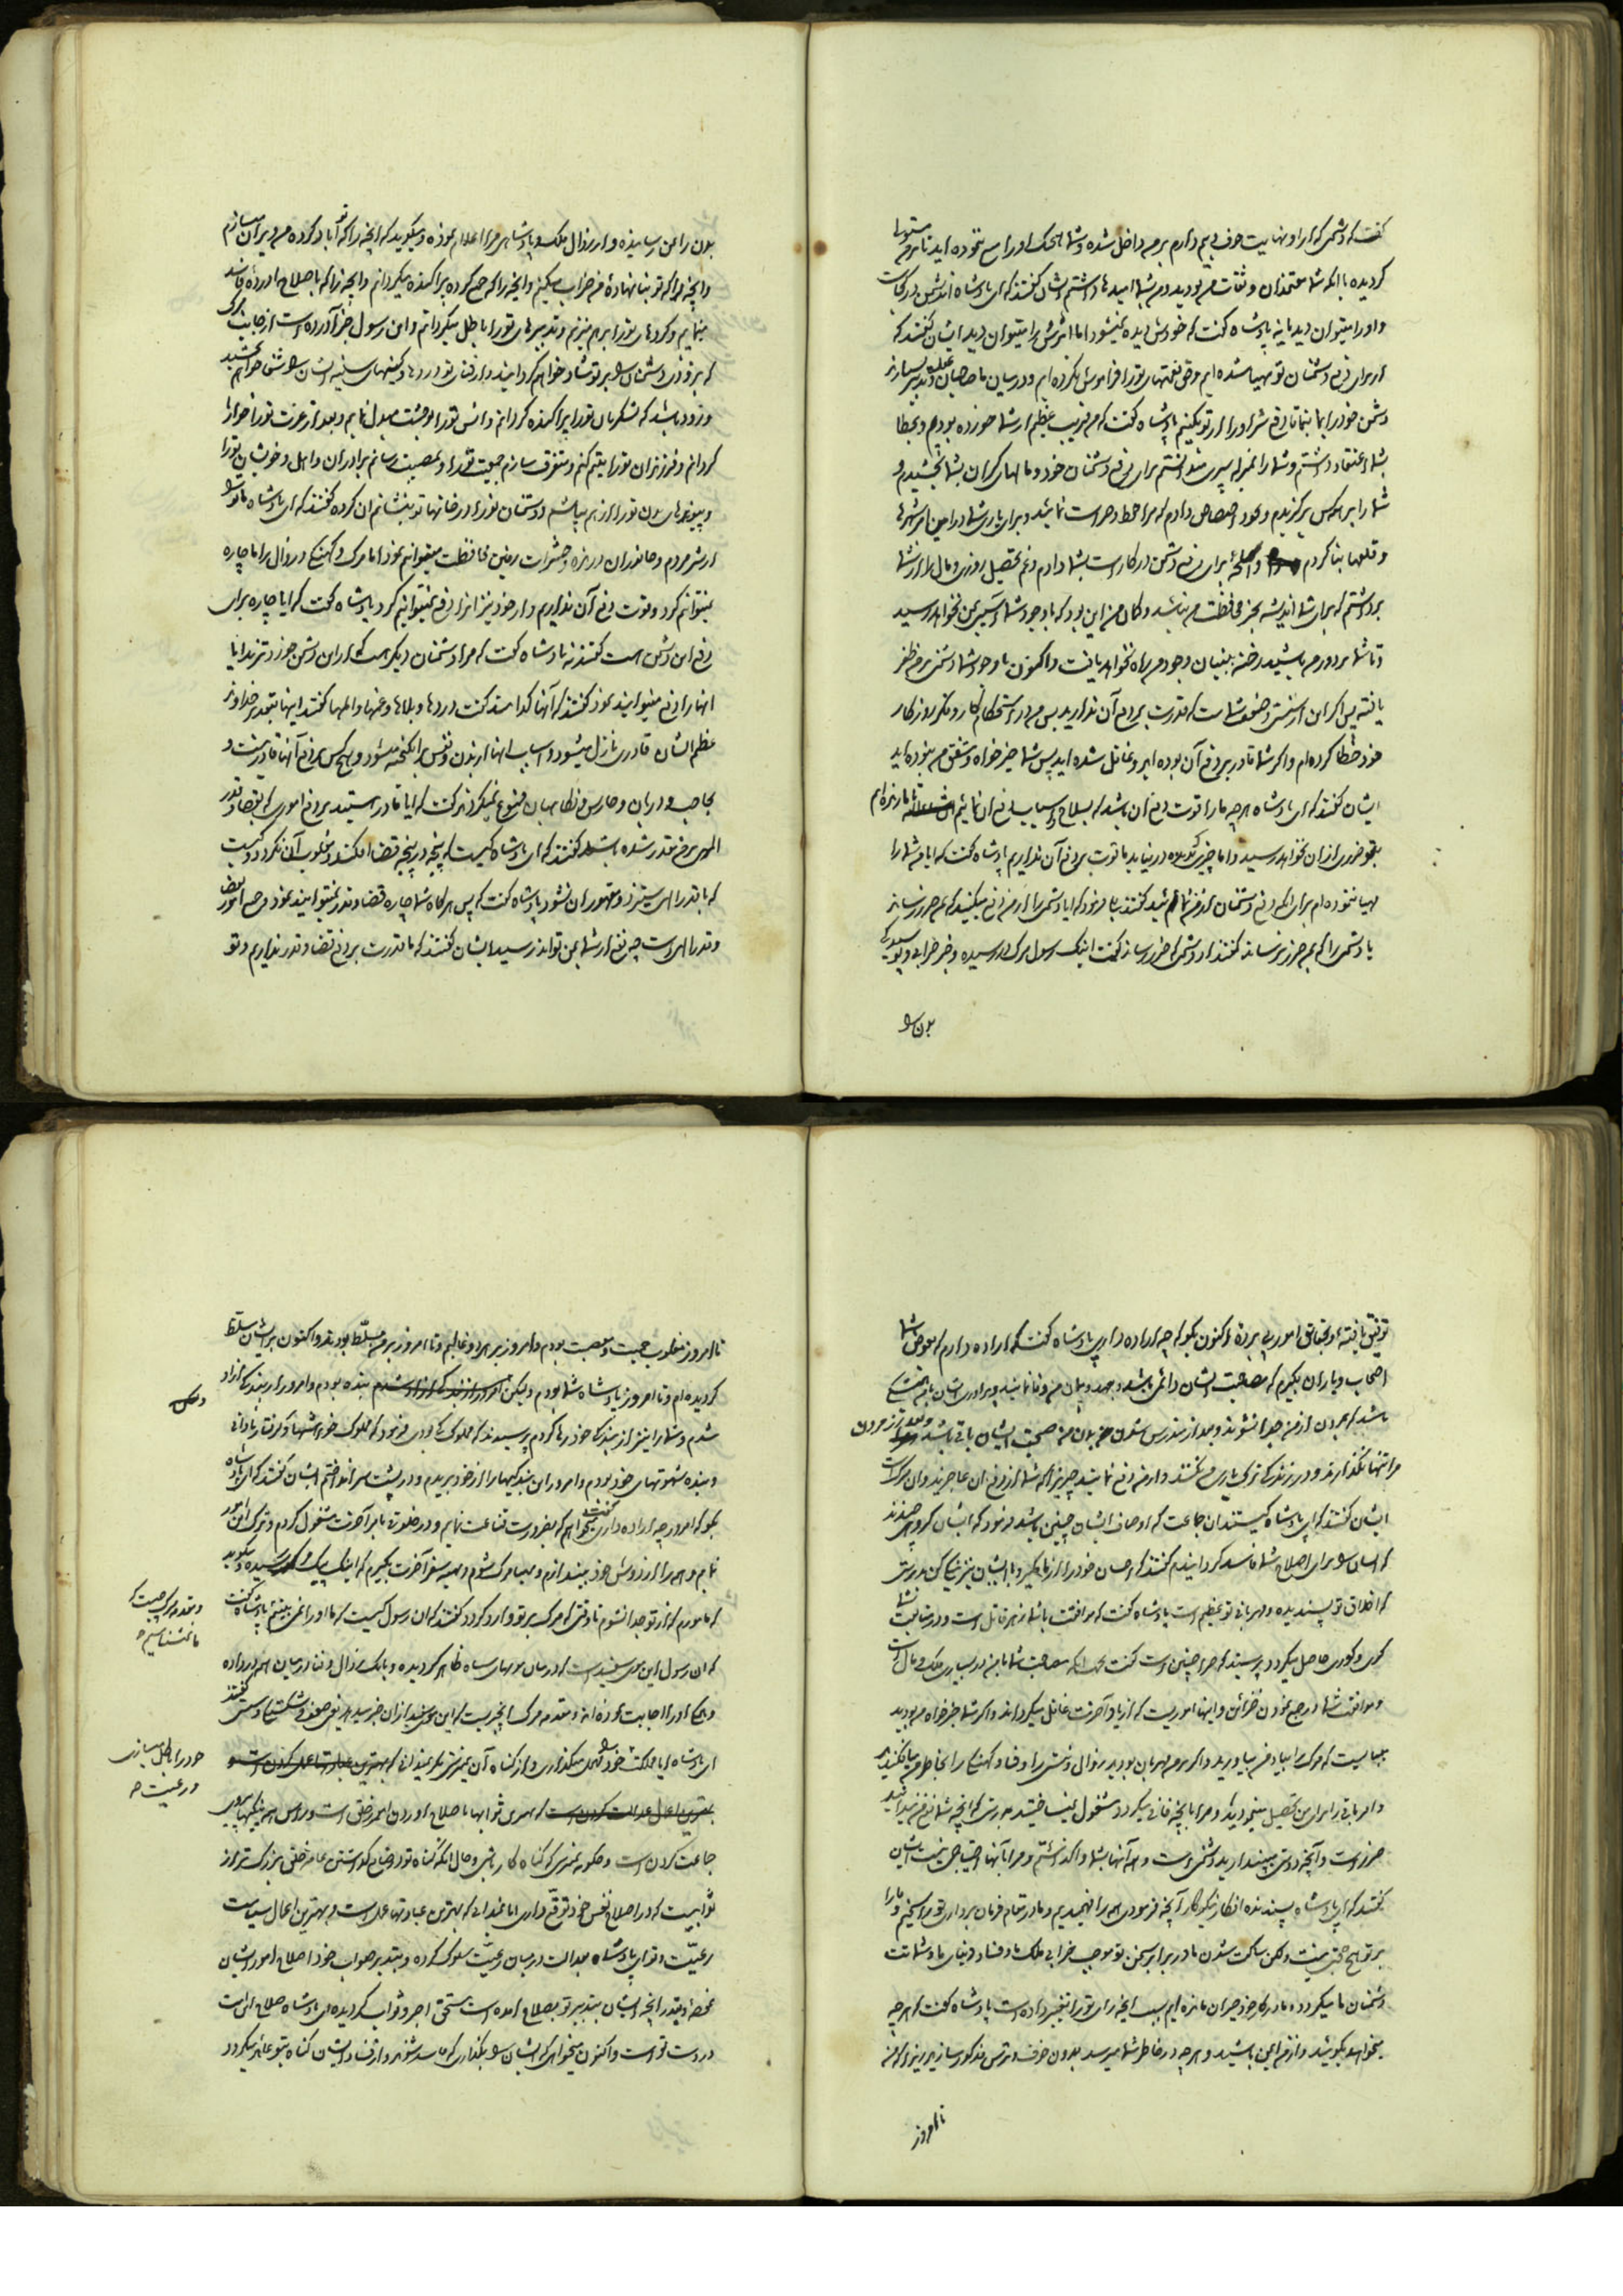 گفت که دشمنی که از او نهایت خوف و بیم دارم بر من داخل شده و شما هیچیک او را منع ننموده اید تا بر من مستولی
گردیده با آنکه شما معتمدان و ثقات من بودید و من بشما امیدها داشتم ایشان گفتند که ای پادشاه این دشمن در کجاست
و او را میتوان دید یا نه پادشاه گفت که خودش دیده نمیشود اما اثرش را میتوان دید ایشان گفتند که
ما از برای دفع دشمنان تو مهیا شده ایم و حق نعمتهای تو را فراموش نکرده ایم و در میان ما صاحبان عقل و تدبیر بسیارند
دشمن خود را بما بنما تا دفع شر او را از تو بکنیم پادشاه گفت که من فریب عظیم از شما خورده بودم و بخطا
بشما اعتقاد داشتم و شما را بمنزله سپری میدانستم برای دفع دشمنان خود و مالهای گران بشما بخشیدم و
شما را بر همه کس برگزیدم و بخود اختصاص دادم که مرا حفظ و حراست نمائید و برای یاری شما در این امر شهرها
و قلعها بنا کردم و اسلحه برای دفع دشمن در کار است بشما دادم و غم تحصیل روزی و مال را از شما
برداشتم که برای شما اندیشه بجز محافظت من نباشد و گمان من این بود که با وجود شما آسیبی بمن نخواهد رسید
و تا شما بر دور من باشید رخنه ببنیان وجود من راه نخواهد یافت و اکنون با وجود شما دشمن بر من ظفر
یافته پس اگر این از سستی و ضعف شماست که قدرت بر دفع آن ندارید پس من در استحکام کار و فکر روزگار
خود خطا کرده ام و اگر شما قادر بر دفع آن بوده اید و غافل شده اید پس شما خیرخواه و مشفق من نبوده اید
ایشان گفتند که ای پادشاه هر چه ما را قوت دفع آن باشد که بسلاح و اسباب دفع آن نمائیم تا ما زنده ایم
بتو ضرری از آن نخواهد رسید و اما چیزی که بدیده در نیاید ما قوت بر دفع آن نداریم پادشاه گفت که آیا من شما را
مهیا ننموده ام برای آنکه دفع دشمنان از من نمائید گفتند بلی فرمود که آیا دشمنی را از من دفع میکنید که بمن ضرر نرساند
یا دشمنی را که بمن ضرر نرساند گفتند از دشمنی که ضرر رساند گفت اینک رسول مرگ رسیده و خبر خرابی و پوسیدگی
بدن را
بدن را بمن رسانیده و از زوال ملک و پادشاهی مرا اعلام نموده و میگوید که آنچه را که تو آباد کرده من ویران میسازم
و آنچه را که تو بنا نهادۀ من خراب میکنم و آنچه را که جمع کرده پراکنده میگردانم و آنچه را که باصلاح آوردۀ فاسد
مینمایم و کردهای تو را برهم میزنم و تدبیرهای تو را باطل میگردانم و این رسول خبر آورده است از جانب مرگ
که بزودی دشمنان را بر تو شاد خواهم گردانید و از فنای تو دردها و کینهای سینه ایشان را شفا خواهم بخشید
و زود باشد که لشکریان تو را پراکنده گردانم و انس تو را بوحشت مبدل نمایم و بعد از عزت تو را خوار
گردانم و فرزندان تو را یتیم کنم و متفرق سازم جمعیت تو را و بمصیبت رسانم برادران و اهل و خویشان تو را
و پیوندهای بدن تو را از هم بپاشم و دشمنان تو را در خانهای تو بنشانم ایشان گفتند که ای پادشاه ما تو را
از شر مردم و جانوران درنده و حشرات زمین محافظت میتوانیم نمود اما مرگ و کهنگی و زوال را ما چاره
نمیتوانیم کرد و قوت دفع آن نداریم و از خود نیز آنرا دفع نمیتوانیم کرد پادشاه گفت که آیا چاره برای
دفع این دشمن هست گفتند نه پادشاه گفت که مرا دشمنان دیگر هست که از این دشمن خوردترند آیا
آنها را دفع میتوانید نمود گفتند که آنها کدامند گفت دردها و بلاها و غمها و المها گفتند اینها بتقدیر خداوند
عظیم الشان قادری نازل میشود و اسباب آنها از بدن و نفس برانگیخته میشود و هیچ کس بر دفع آنها قادر نیست و
بحاجب و دربان و حارس و نگاهبان ممنوع نمیگردند گفت که آیا قادر هستید بر دفع اموری که بقضا و قدر
الهی بر من مقدر شده باشد گفتند که ای پادشاه کیست که پنجه در پنجه قضا افکند و مغلوب آن نگردد و کیست
که با قدر الهی ستیزد و مقهور آن نشود پادشاه گفت که پس هرگاه شما چاره قضا و قدر نمیتوانید نمود و جمیع امور بقضا
و قدر الهی است چه نفع از شما بمن تواند رسید ایشان گفتند که ما قدرت بر دفع قضا و قدر نداریم و تو
توفیق یافته و بحقایق امور پی برده اکنون بگو که چه اراده داری پادشاه گفت که اراده دارم که بعوض شما
اصحاب و یاران بگیرم که مصاحبت ایشان دائمی باشد و بعهد و پیمان من وفا نمایند و برادری ایشان با من همیشگی
باشد که بمردن از من جدا نشوند و بعد از مندرس شدن بدن من صحبت ایشان باقی باشد و بعد از مردن
مرا تنها نگذارند و در زندگی ترک یاری من نکنند و از من دفع نمایند چیزی را که شما از دفع آن عاجزید و آن مرگ است
ایشان گفتند که ای پادشاه کیستند آن جماعت که اوصاف ایشان چنین باشد فرمود که ایشان گروهی چندند
که ایشان را برای اصلاح شما فاسد گردانیدم گفتند که احسان خود را از ما باز مگیر و با ایشان نیز نیکی کن بدرستی
که اخلاق تو پسندیده و مهربانی تو عظیم است پادشاه گفت که مرافقت با شما زهر قاتل است و در متابعت شما
کری و کوری حاصل میگردد پرسیدند که چرا چنین است گفت بجهت آنکه مصاحبت شما با من در بسیاری ملک و مال است
و موافقت شما در جمع نمودن خزائن و اینها اموریست که از یاد آخرت غافل میگرداند و اگر شما خیرخواه من بودید
میبایست که مرگ را بیاد من بیاورید و اگر بر من مهربان بودید زوال و نیستی و فنا و کهنگی را بخاطر من بیافکنید
و امر باقی را برای من تحصیل مینمودید و مرا بآنچه فانی میگردد مشغول نمیساختید بدرستی که آنچه شما نفع من میدانید
ضرر است و آنچه دوستی میپندارید دشمنی است و همه آنها بشما واگذاشتم و مرا بآنها احتیاجی نیست ایشان
گفتند که ای پادشاه پسندیده افعال نیکوکار آنچه فرمودی همه را فهمیدیم و ما در مقام فرمان برداری تو هستیم و ما را
بر تو هیچ حجتی نیست ولکن ساکت شدن ما در برابر سخن تو موجب خرابی ملک ما و فساد دنیای ما و شماتت
دشمنان ما میگردد و ما در کار خود حیران مانده ایم بسبب آنچه رای تو را تغییر داده است پادشاه گفت که هر چه
میخواهید بگوئید و از من ایمن باشید و هر چه در خاطر شما میرسد بدون خوف و ترس مذکور سازید زیرا که من
تا امروز
تا امروز مغلوب حمیت و عصبیت بودم و امروز بر هر دو غالبم و تا امروز بر من مسلط بودند و اکنون بر ایشان مسلط
گردیده ام و تا امروز پادشاه شما بودم ولیکن بنده بودم و امروز از بندگی آزاد
شدم و شما را نیز از بندگی خود رها کردم پرسیدند که مملوک که بودی فرمود که مملوک خواهشها و گرفتار نادانی
و بنده شهوتهای خود بودم و امروز این بندگیها را از خود بریدم و در پشت سر انداختم ایشان گفتند که ای پادشاه
بگو که امروز چه اراده داری گفت میخواهم که بضرورت قناعت نمایم و در خلوتی بامر آخرت مشغول گردم و ترک این امور
نمایم و همه را از دوش خود بیندازم و مهیای مرگ شوم و تهیه سفر آخرت بگیرم که اینک پیک مرگ رسیده و میگوید
که مامورم که از تو جدا نشوم تا وقتی که مرگ بر تو وارد گردد گفتند که آن رسول کیست که ما او را نمی بینیم پادشاه گفت
و مقدمه مرگ چیست که
ما نمیشناسیم
که آن رسول این موی سفید است که در میان موهای سیاه ظاهر گردیده و بانک زوال و فنا در میان همه در داده
و همگی او را اجابت نموده اند و مقدمه مرگ آنچیزیست که این موی سفید از آن خبر میدهد یعنی ضعف و شکستگی و سستی گفتند
ای پادشاه آیا مملکت خود را مهمل میگذاری و از گناه آن نمیترسی مگر نمیدانی که
خود را باطل میسازی
و رعیت
که بهترین ثوابها باصلاح آوردن امور خلق است و سر همه نیکیها پیروی
جماعت کردن است و چگونه نمیترسی که گناه کار باشی و حال آنکه گناه تو در ضایع گذاشتن عامه خلق بزرگتر از
ثوابیست که در اصلاح نفس خود توقع داری آیا نمیدانی که بهترین عبادتها عمل است و بهترین اعمال سیاست
رعیت و تو ای پادشاه بعدالت در میان رعیت سلوک کرده و بتدبیر صواب خود اصلاح امور ایشان
نموده و بقدر آنچه ایشان بتدبیر تو بصلاح آمده است مستحق اجر و ثواب گردیده ای پادشاه صلاح این امت
در دست تو است و اکنون میخواهی که ایشان را بگذاری که فاسد شوند و از فساد ایشان گناه بتو عاید میگردد